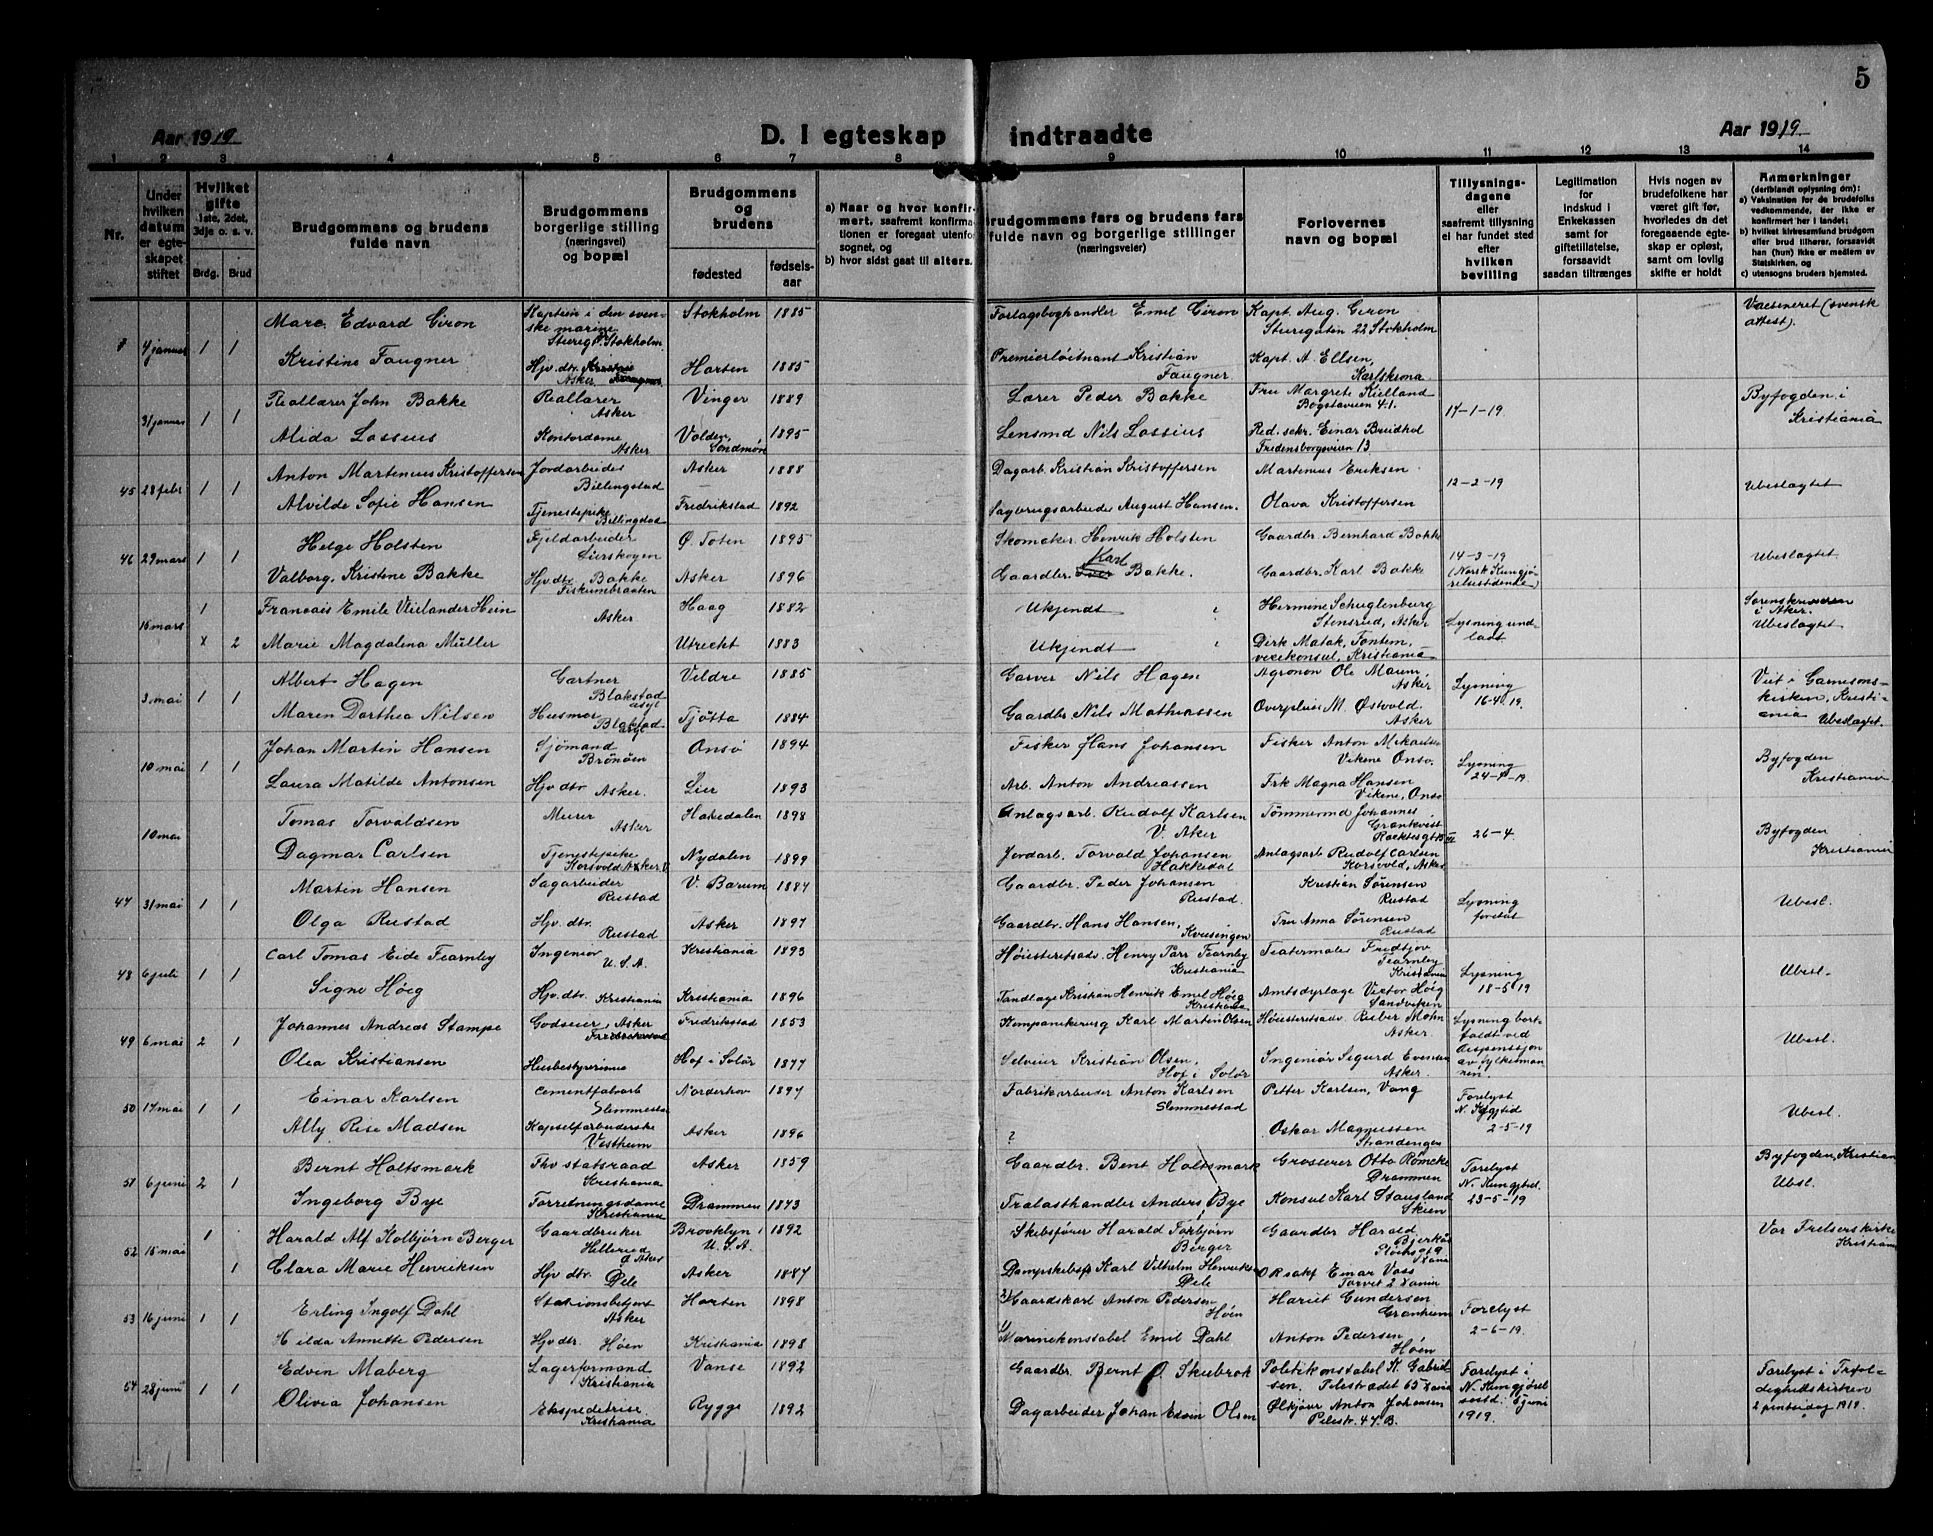 5
Aar 1919
D. I egteskap indtraadte
Aar 1919
1 2 3 4 5 6 7 8 9 10 11 12 13 14
Nr.
Under hvilken datum er egteskapet stiftet
Hvilket gifte 1ste, 2det, 3dje o. s. v.
Brdg. Brud
Brudgommens og brudens fulde navn
Brudgommens borgerlige stilling (næringsvei) og bopæl
Brudgommens og brudens
fødested
fødselsaar
a) Naar og hvor konfirmert, saafremt konfirmationen er foregaat utenfor sognet, og
b) hvor sidst gaat til alters.
Brudgommens fars og brudens fars fulde navn og borgerlige stillinger (næringsveier)
Forlovernes navn og bopæl
Tillysningsdagene eller saafremt tillysning ei har fundet sted efter hvilken bevilling
Legitimation for indskud i Enkekassen samt for giftetillatelse, forsaavidt saadan tiltrænges
Hvis nogen av brudefolkene har været gift før, hvorledes da det foregaaende egteskap er opløst, samt om lovlig skifte er holdt
Anmerkninger (deriblandt oplysning om):
a) Vaksination for de brudefolks vedkommende, der ikke er konfirmert her i landet;
b) hvilket kirkesamfund brudgom eller brud tilhører, forsaavidt han (hun) ikke er medlem av Statskirken, og
c) utensogns bruders hjemsted.
8 4 januar 1 1
Marc Edvard Giron Kaptein i den svenske marine Stureg. Stokholm Stokholm 1885 Forlagsboghandler Emil Giron Kapt. Aug. Giron Sturegaten 22 Stokholm Vacsineret (svensk attest).
Kristine Faugner Hjv. dtr. Asker Horten 1885 Premierløitnant Kristian Faugner Kapt. A. Ellsen, Karlskrona
31 januar 1 1
Reallærer John Bakke Reallærer Asker Vinger 1889 Lærer Peder Bakke Fru Margrete Kielland Bogstaveien 41. 17-1-19 Byfogden i Kristiania
Alida Lossius Kontordame Asker Volden, Søndmør 1895 Lensmd Nils Lossius Red. sekr. Einar Breidhol Fredensborgveien 13
45 28 febr 1 1
Anton Martenius Kristoffersen Jordarbeider Billingstad Asker 1888 Dagarb. Kristian Kristoffersen Martenius Eriksen 12-2-19 Ubeslagtet
Alvilde Sofie Hansen Tjenestepike Billingstad Fredrikstad 1892 Sagbrugsarbeider August Hansen. Olava Kristoffersen
46 29 mars 1 1
Helge Holsten Fjeldarbeider Lierskogen Ø. Toten 1895 Skomaker Henrik Holsten Gaardbr. Bernhard Bakke 14-3-19 (Norsk Kungjørelsestidende) Ubeslagtet
Valborg Kristine Bakke Hjv. dtr. Bakke Fiskumbraaten Asker 1896 Gaardbr. Karl Bakke. Gaardbr. Karl Bakke
15 mars 1
Francais Emile Vlielander Hein Asker Haag 1882 Ukjendt Hermine Schuglenburg Stensrud, Asker Lysning undladt Sorenskriveren i Aker. Ubeslagtet
x 2
Marie Magdalena Müller Utrecht 1883 Ukjendt Dirk Matak, Fontem, vicekonsul, Kristiania
3 mai 1 1
Albert Hagen Gartner Blakstad asyl Veldre 1885 Garver Nils Hagen Agronom Ole Maurer, Asker Lysning 16-4-19. Viet i Garnisonskirken, Kristiania Ubeslagtet.
Maren Dorthea Nilsen Husmor Blakstad asyl Tjøtta 1884 Gaardbr. Nils Mathiassen Overpleier M. Østvold Asker
10 mai 1 1
Johan Martin Hansen Sjømand Brønøen Onsø 1894 Fisker Hans Johansen Fisker Anton Mikalsen Vikene Onsø. Lysning 24-4-19. Byfogden Kristiania
Laura Matilde Antonsen Hjv. dtr Asker. Lier 1893 Arb. Anton Andreassen Frk Magna Hansen Vikene, Onsø
10 mai
Tomas Torvaldsen Murer Asker Hakedalen 1898 Anlagsarb. Rudolf Karlsen V. Aker Tømmermd Johannes Grankvist 26-4. Byfogden Kristiania
Dagmar Carlsen Tjenestepike Korsvold, Asker Nydalen 1899 Jordarb. Torvald Johansen Hakkedal Anlagsarb Rudolf Carlsen Korsvold, Asker
47 31 mai 1 1
Martin Hansen Sagarbeider Rustad V. Bærum 1884 Gaardbr. Peder Johansen Rustad. Kristian Sørensen Rustad Lysning foretat Ubesl.
Olga Rustad Hjv. dtr. Rustad Asker 1897 Gaardbr. Hans Hansen, Kvisingen Fru Anna Sørensen Rustad
48 6 juli 1 1
Carl Tomas Eide Fearnley Ingeniør U.S.A. Kristiania 1893 Høiesteretsadv. Henry Parr Fearnley Kristiania Teatermaler Fridtjov Fearnley Kristiania Lysning 18-5-19 Ubesl.
Signe Höeg Hjv. dtr. Kristiania Kristiania 1896 Tandlæge Kristian Henrik Emil Höeg Kristiania Amtsdyrlæge Victor Höeg Sandviken
49 6 mai 2 1
Johannes Andreas Stampe Godseier, Asker Fredrikstad 1853 Kompanikirurg Karl Martin Olsen Høiesteretsadv. Rieber Mohn Asker Lysning bortfaldt ved dispensasjon av fylkesmannen. Ubesl.
Olea Kristiansen Husbestyrerinne Hof i Solør 1877 Selveier Kristian Olsen, Hof i Solør Ingeniør Sigurd Evensen Asker.
50 17 mai 1 1
Einar Karlsen Cementfabarb Slemmestad Norderhov 1897 Fabrikarbeider Anton Karlsen Slemmestad Petter Karlsen, Vang Forelyst N. Kgjtid 2-5-19 Ubesl.
Ally Rise Madsen Kapselfarbeiderske Vestheim Asker 1896 ? Oskar Magnussen Strandengen
51 6 juni 2 1
Bernt Holtsmark Fhv statsraad Kristiania Asker 1859 Gaardbr. Bent Holtsmark Grosserer Otto Römcke Drammen Forelyst N. Kungjtid. 23-5-19 Byfogden, Kristiania Ubesl.
Ingeborg Bye Forretningsdame Kristiania Drammen 1873 Trælasthandler Anders Bye Konsul Karl Stousland Skien
52 15 mai 1
Harald Alf Kolbjørn Berger Gaardbruker Hillerud Ø Asker Brooklyn i U.S.A. 1892 Skibsfører Harald Torbjørn Berger Gaardbr Harald Bjerkås Vor Frelsers kirke Kristiania
1
Clara Marie Henriksen Hjv dtr. Dele Asker 1887 Dampskibsf Karl Vilhelm Henriksen Dele ORsakf Einar Voss Torvet 2 Xania
53 16 juni 1 1
Erling Ingolf Dahl Stationsbetjent Asker Horten 1898 2) Gaardskarl Anton Pedersen Höen Hariet Gundersen Granheim Forelyst 2-6-19.
Hilda Annette Pedersen Hjv. dtr. Höen Kristiania 1898 1) Marinekonstabel Emil Dahl Anton Pedersen, Höen
54 28 juni 1 1
Edvin Maberg Lagerformand Kristiania Vanse 1892 Gaardbr. Bernt O. Skeibrok Politikonstabel K. Gabrielsen. Pilestrædet 65 Xania Forelyst i N. Kungjørelsestid. 6 juni 1919. Forelyst i Trefoldighedskirken 2 pintsedag 1919.
Olivia Johansen Ekspeditrise Kristiania Rygge 1892 Dagarbeider Johan Edvin Olsen Ølkjører Anton Johansen Pilestr. 47. B.